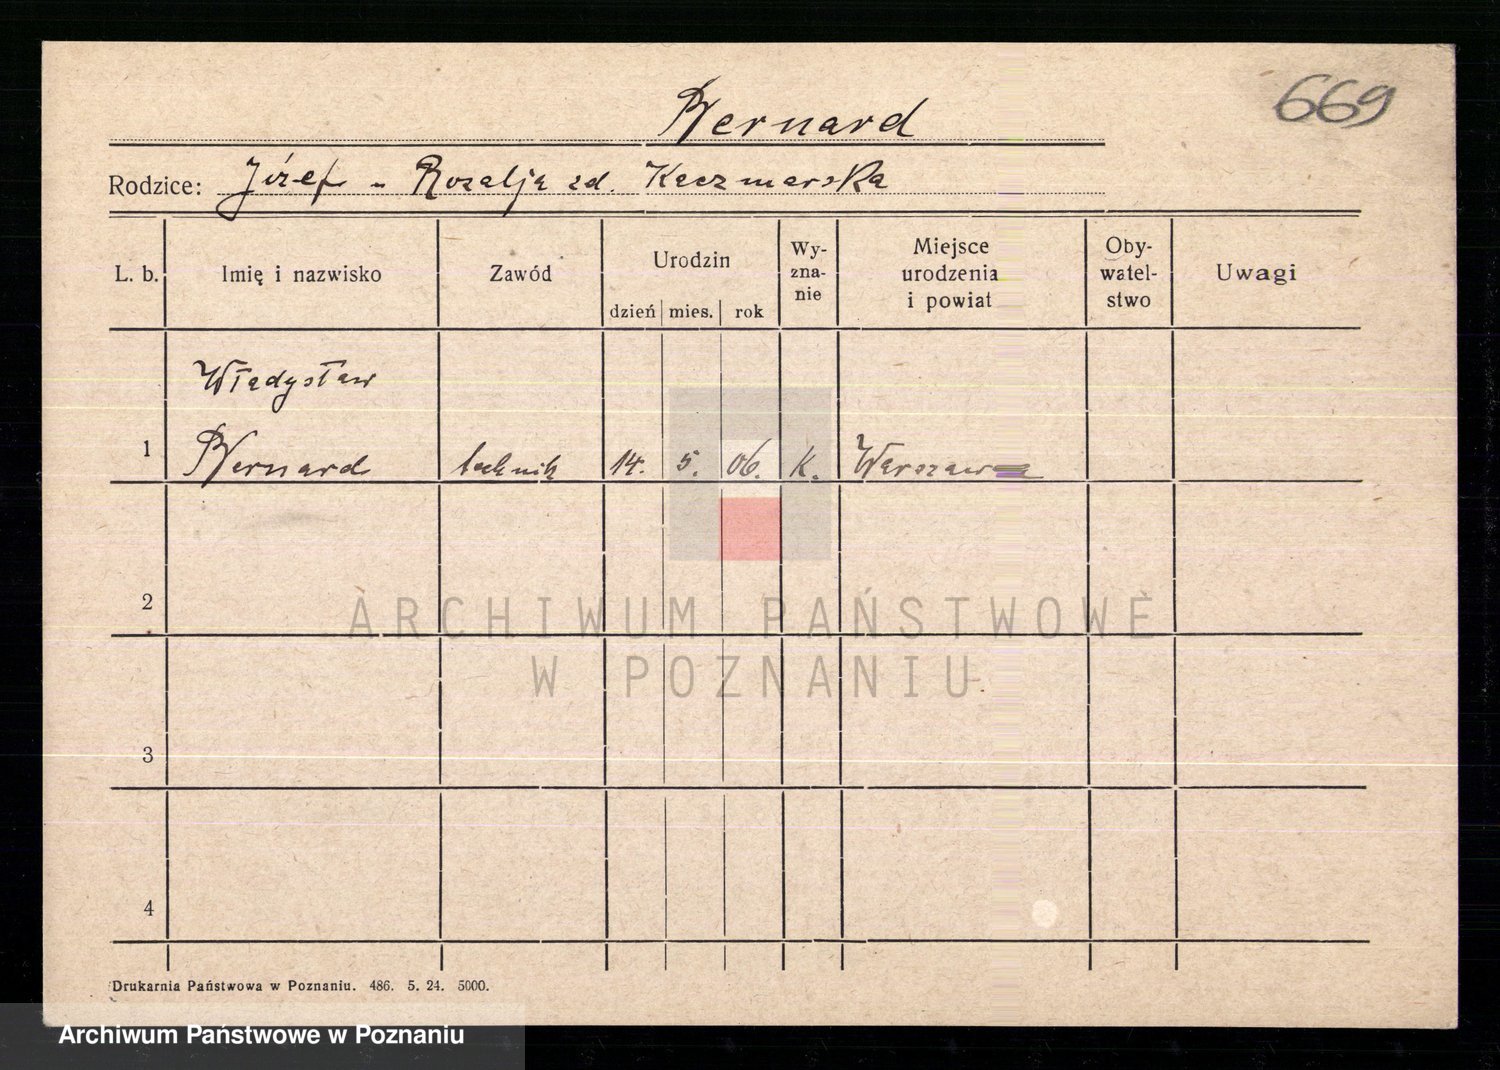 669
Bernard
Rodzice: Józef - Rozalja zd. Kaczmarska
L. b. Imię i nazwisko Zawód Urodzin dzień mies. rok Wy-zna-nie Miejsce urodzenia i powiat Oby-watel-stwo Uwagi
Władysław
1 Bernard technik 14. 5. 06. K. Warszawa
2
ARCHIWUM PAŃSTWOWE
W POZNANIU
3
4
Drukarnia Państwowa w Poznaniu. 486. 5. 24. 5000.
Archiwum Państwowe w Poznaniu